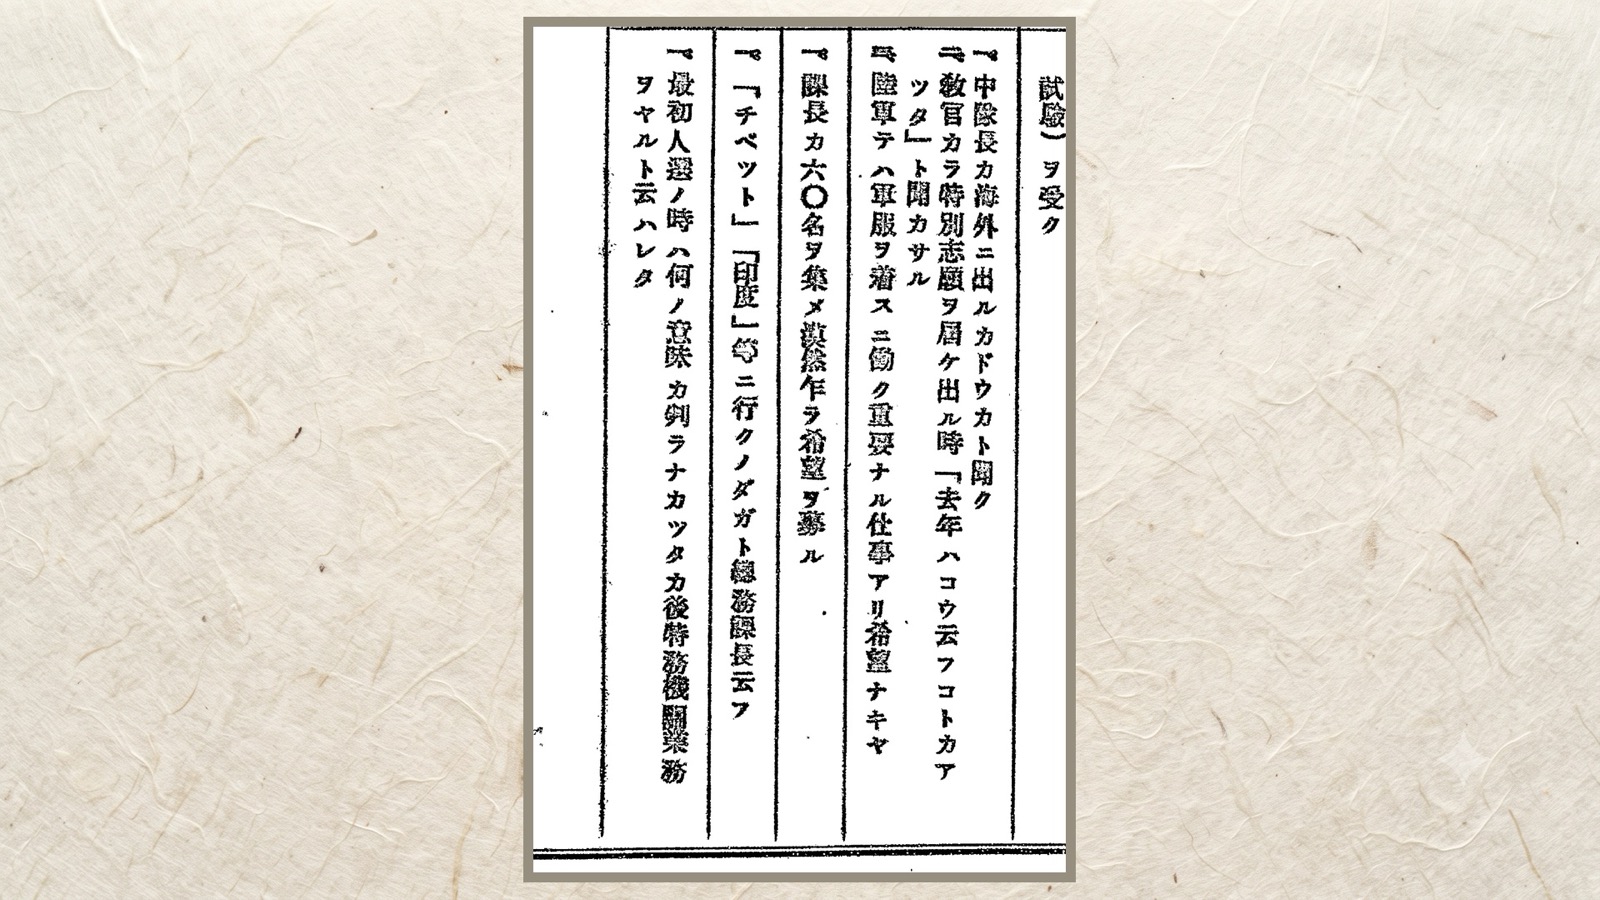 試験）ヲ受ク
一、中隊長カ海外ニ出ルカドウカト聞ク
二、教官カラ特別志願ヲ届ケ出ル時「去年ハコウ云フコトカア
ツタ」ト聞カサル
三、陸軍テハ軍服ヲ着スニ働ク重要ナル仕事アリ希望ナキヤ
一、課長カ六〇名ヲ集メ漠然乍ラ希望ヲ募ル
一、「チベット」「印度」等ニ行クノダガト総務課長云フ
一、最初人選ノ時ハ何ノ意味カ判ラナカツタカ後特務機關業務
ヲヤルト云ハレタ